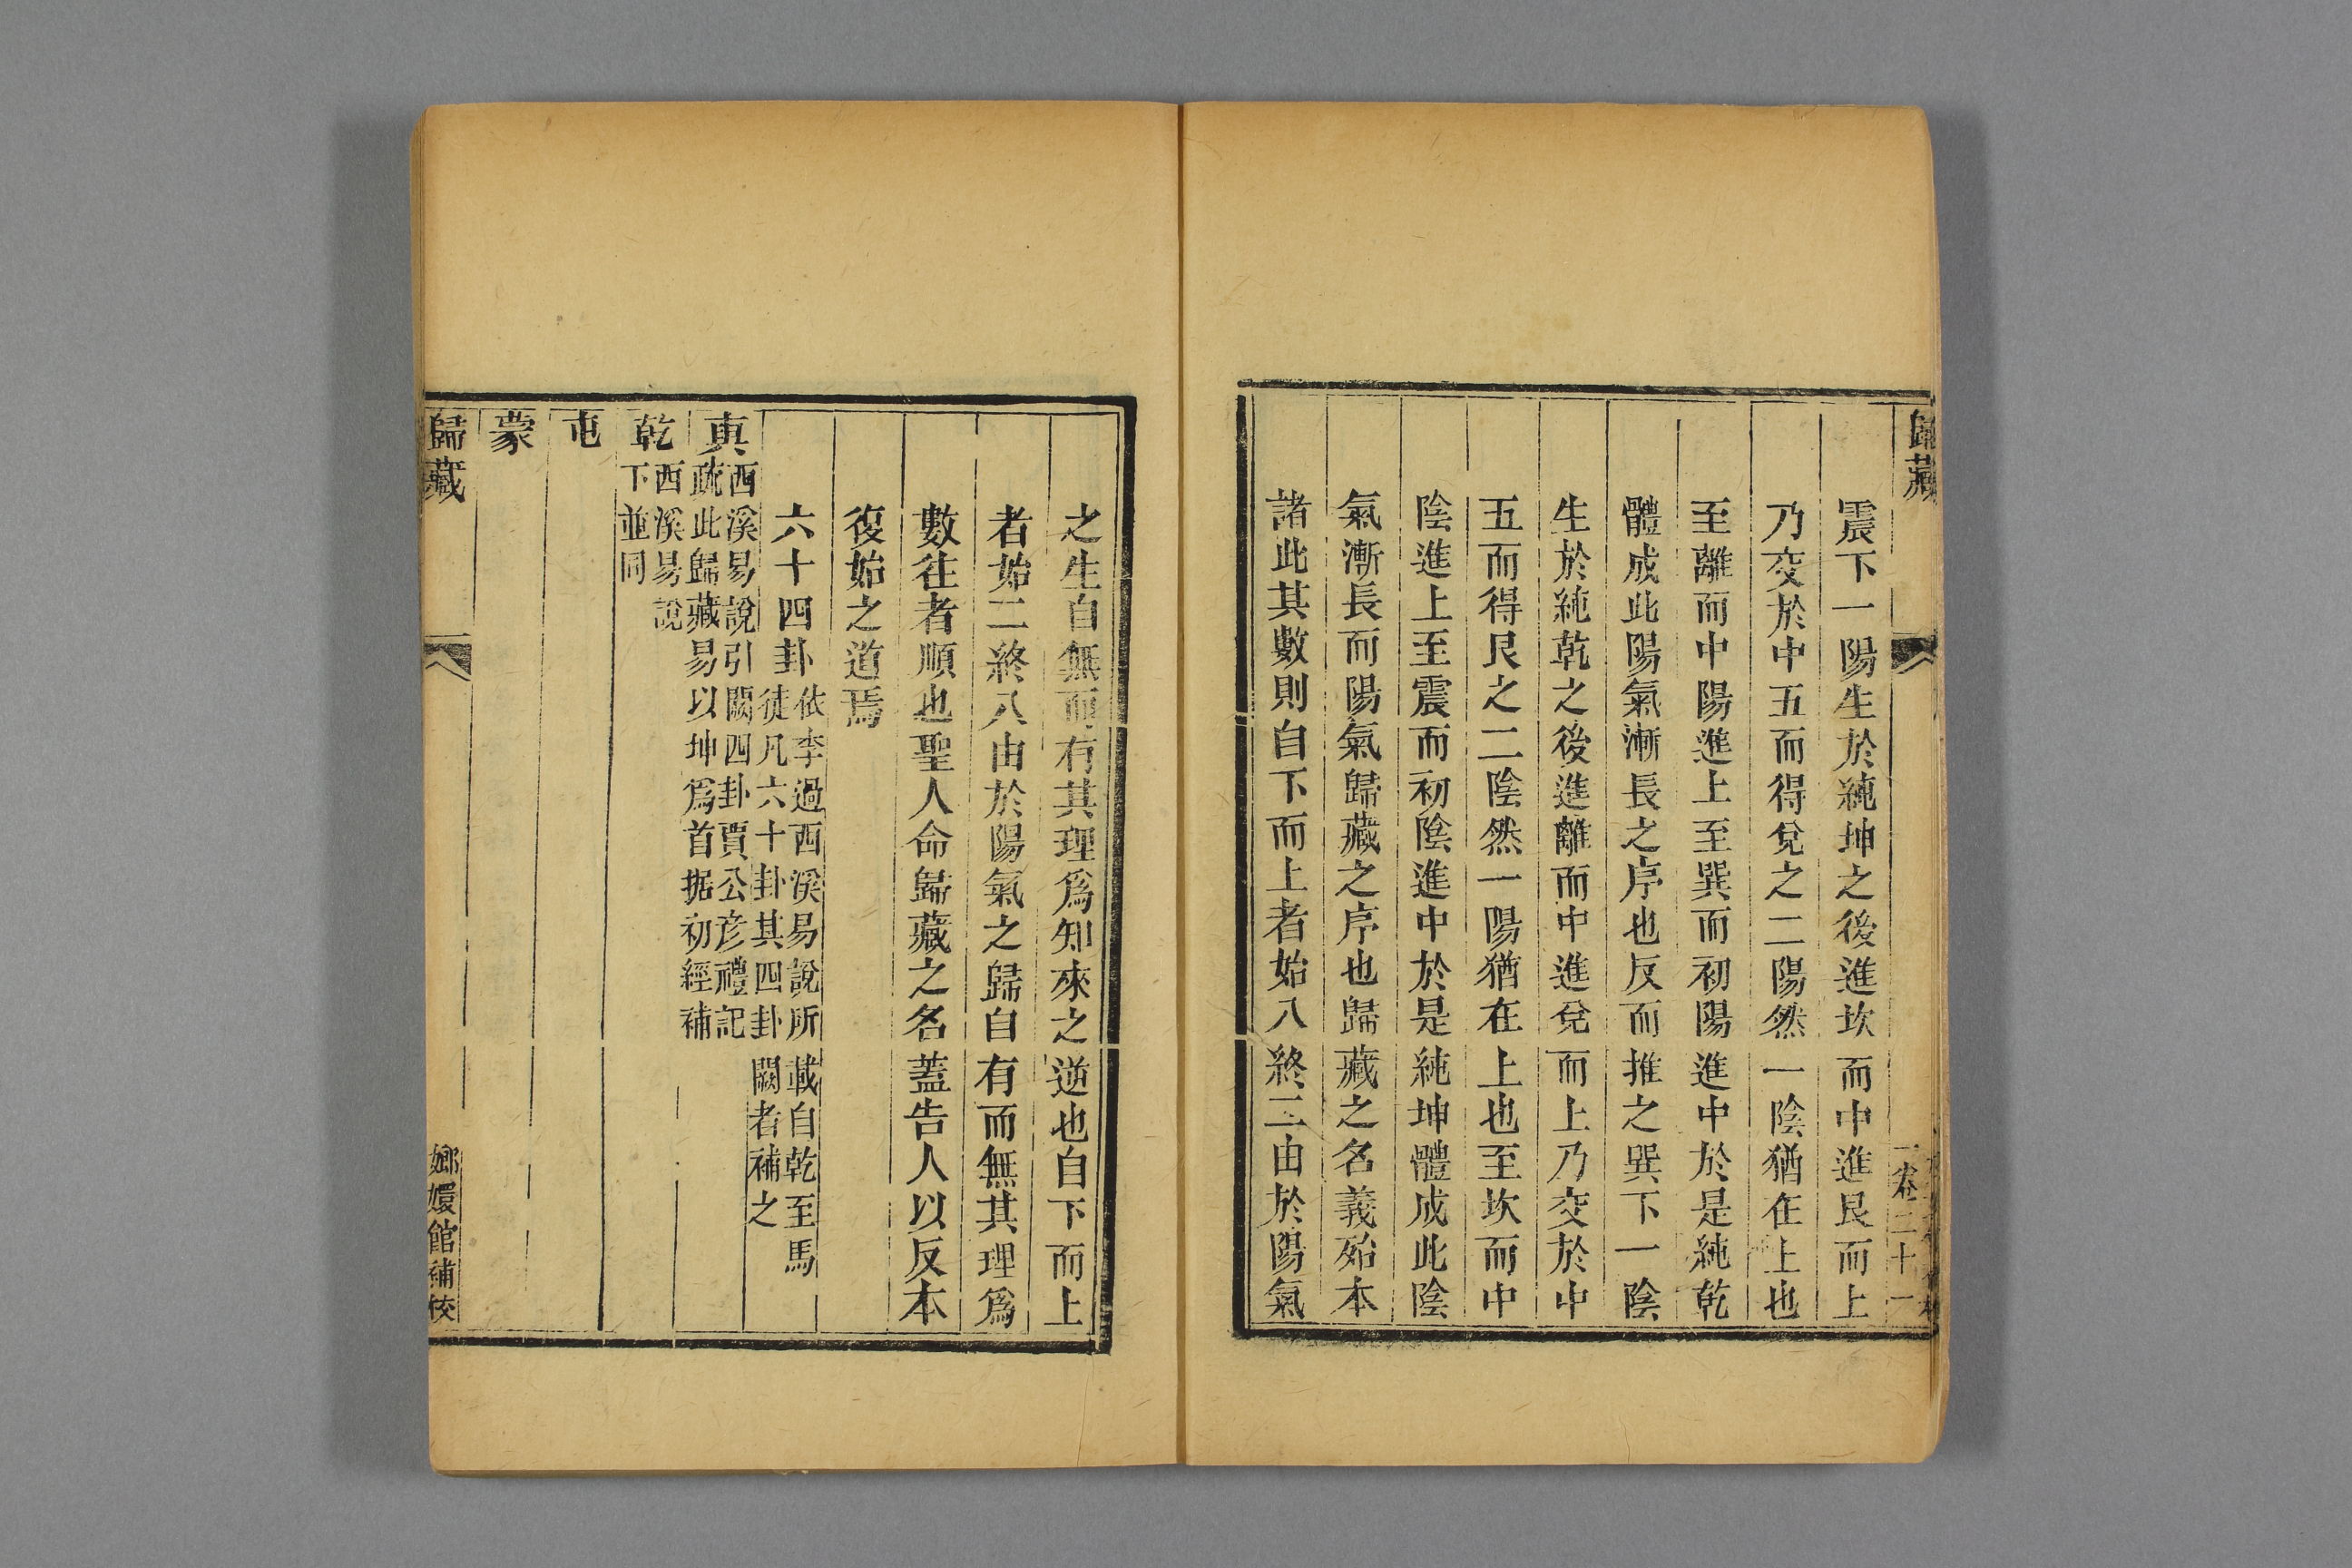 歸藏
卷二十一
震下一陽生於純坤之後進坎而中進艮而上
乃交於中五而得兌之二陽然一陰猶在上也
至離而中陽進上至巽而初陽進中於是純乾
體成此陽氣漸長之序也反而推之巽下一陰
生於純乾之後進離而中進兌而上乃交於中
五而得艮之二陰然一陽猶在上也至坎而中
陰進上至震而初陰進中於是純坤體成此陰
氣漸長而陽氣歸藏之序也歸藏之名義殆本
諸此其數則自下而上者始八終二由於陽氣
之生自無而有其理爲知來之逆也自下而上
者始二終八由於陽氣之歸自有而無其理爲
數往者順也聖人命歸藏之名蓋告人以反本
復始之道焉
六十四卦依李過西溪易說所載自乾至馬
徒凡六十卦其四卦闕者補之
𠕋西溪易說引闕四卦賈公彥禮記
疏此歸藏易以坤爲首据初經補
乾西溪易說
下並同
屯
蒙
歸藏
嫏嬛館補校